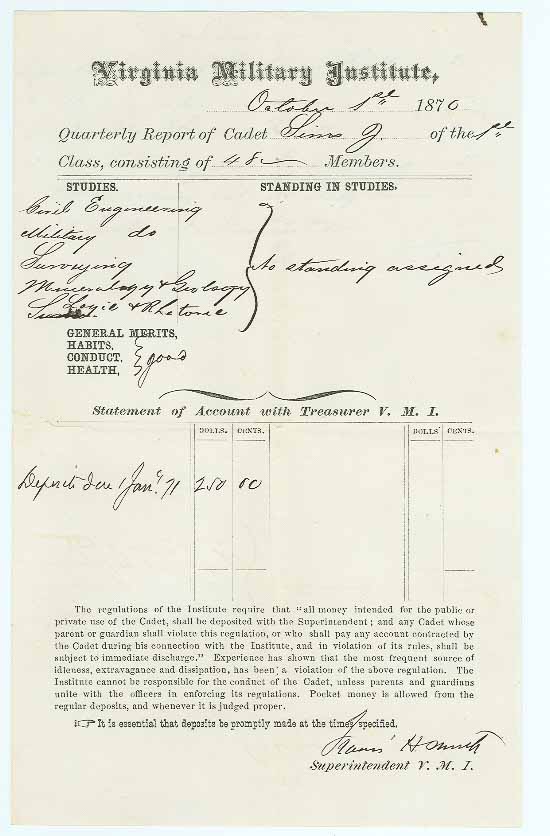 Virginia Military Institute,
October 1st 1870
Quarterly Report of Cadet Sims J. of the 1st
Class, consisting of 48 Members.
STUDIES. STANDING IN STUDIES.
Civil Engineering
Military do
Surveying
Mineralogy & Geology
Logic & Rhetoric
No standing assigned
GENERAL MERITS,
HABITS,
CONDUCT,
HEALTH,
good
Statement of Account with Treasurer V. M. I.
DOLLS. CENTS. DOLLS CENTS.
Deposit due 1 Jany. 71 250 00
The regulations of the Institute require that "all money intended for the public or
private use of the Cadet, shall be deposited with the Superintendent; and any Cadet whose
parent or guardian shall violate this regulation, or who shall pay any account contracted by
the Cadet during his connection with the Institute, and in violation of its rules, shall be
subject to immediate discharge." Experience has shown that the most frequent source of
idleness, extravagance and dissipation, has been a violation of the above regulation. The
Institute cannot be responsible for the conduct of the Cadet, unless parents and guardians
unite with the officers in enforcing its regulations. Pocket money is allowed from the
regular deposits, and whenever it is judged proper.
☞ It is essential that deposits be promptly made at the times specified.
Francis H Smith
Superintendent V. M. I.